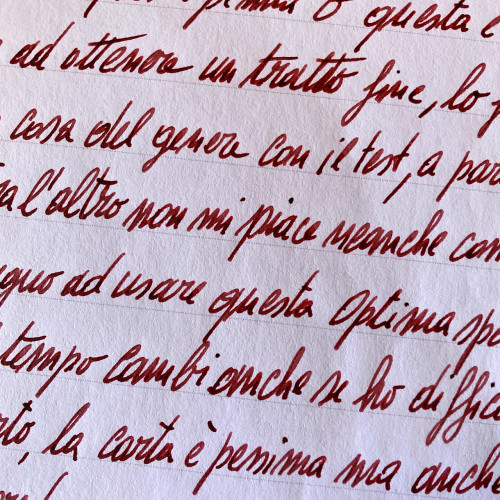 o questa è
ad ottenere un tratto fine, lo
cosa del genere con il test, a par
l'altro non mi piace neanche com
ad usare questa Optima spe
tempo cambi anche se ho diffic
la carta è pessima ma anche